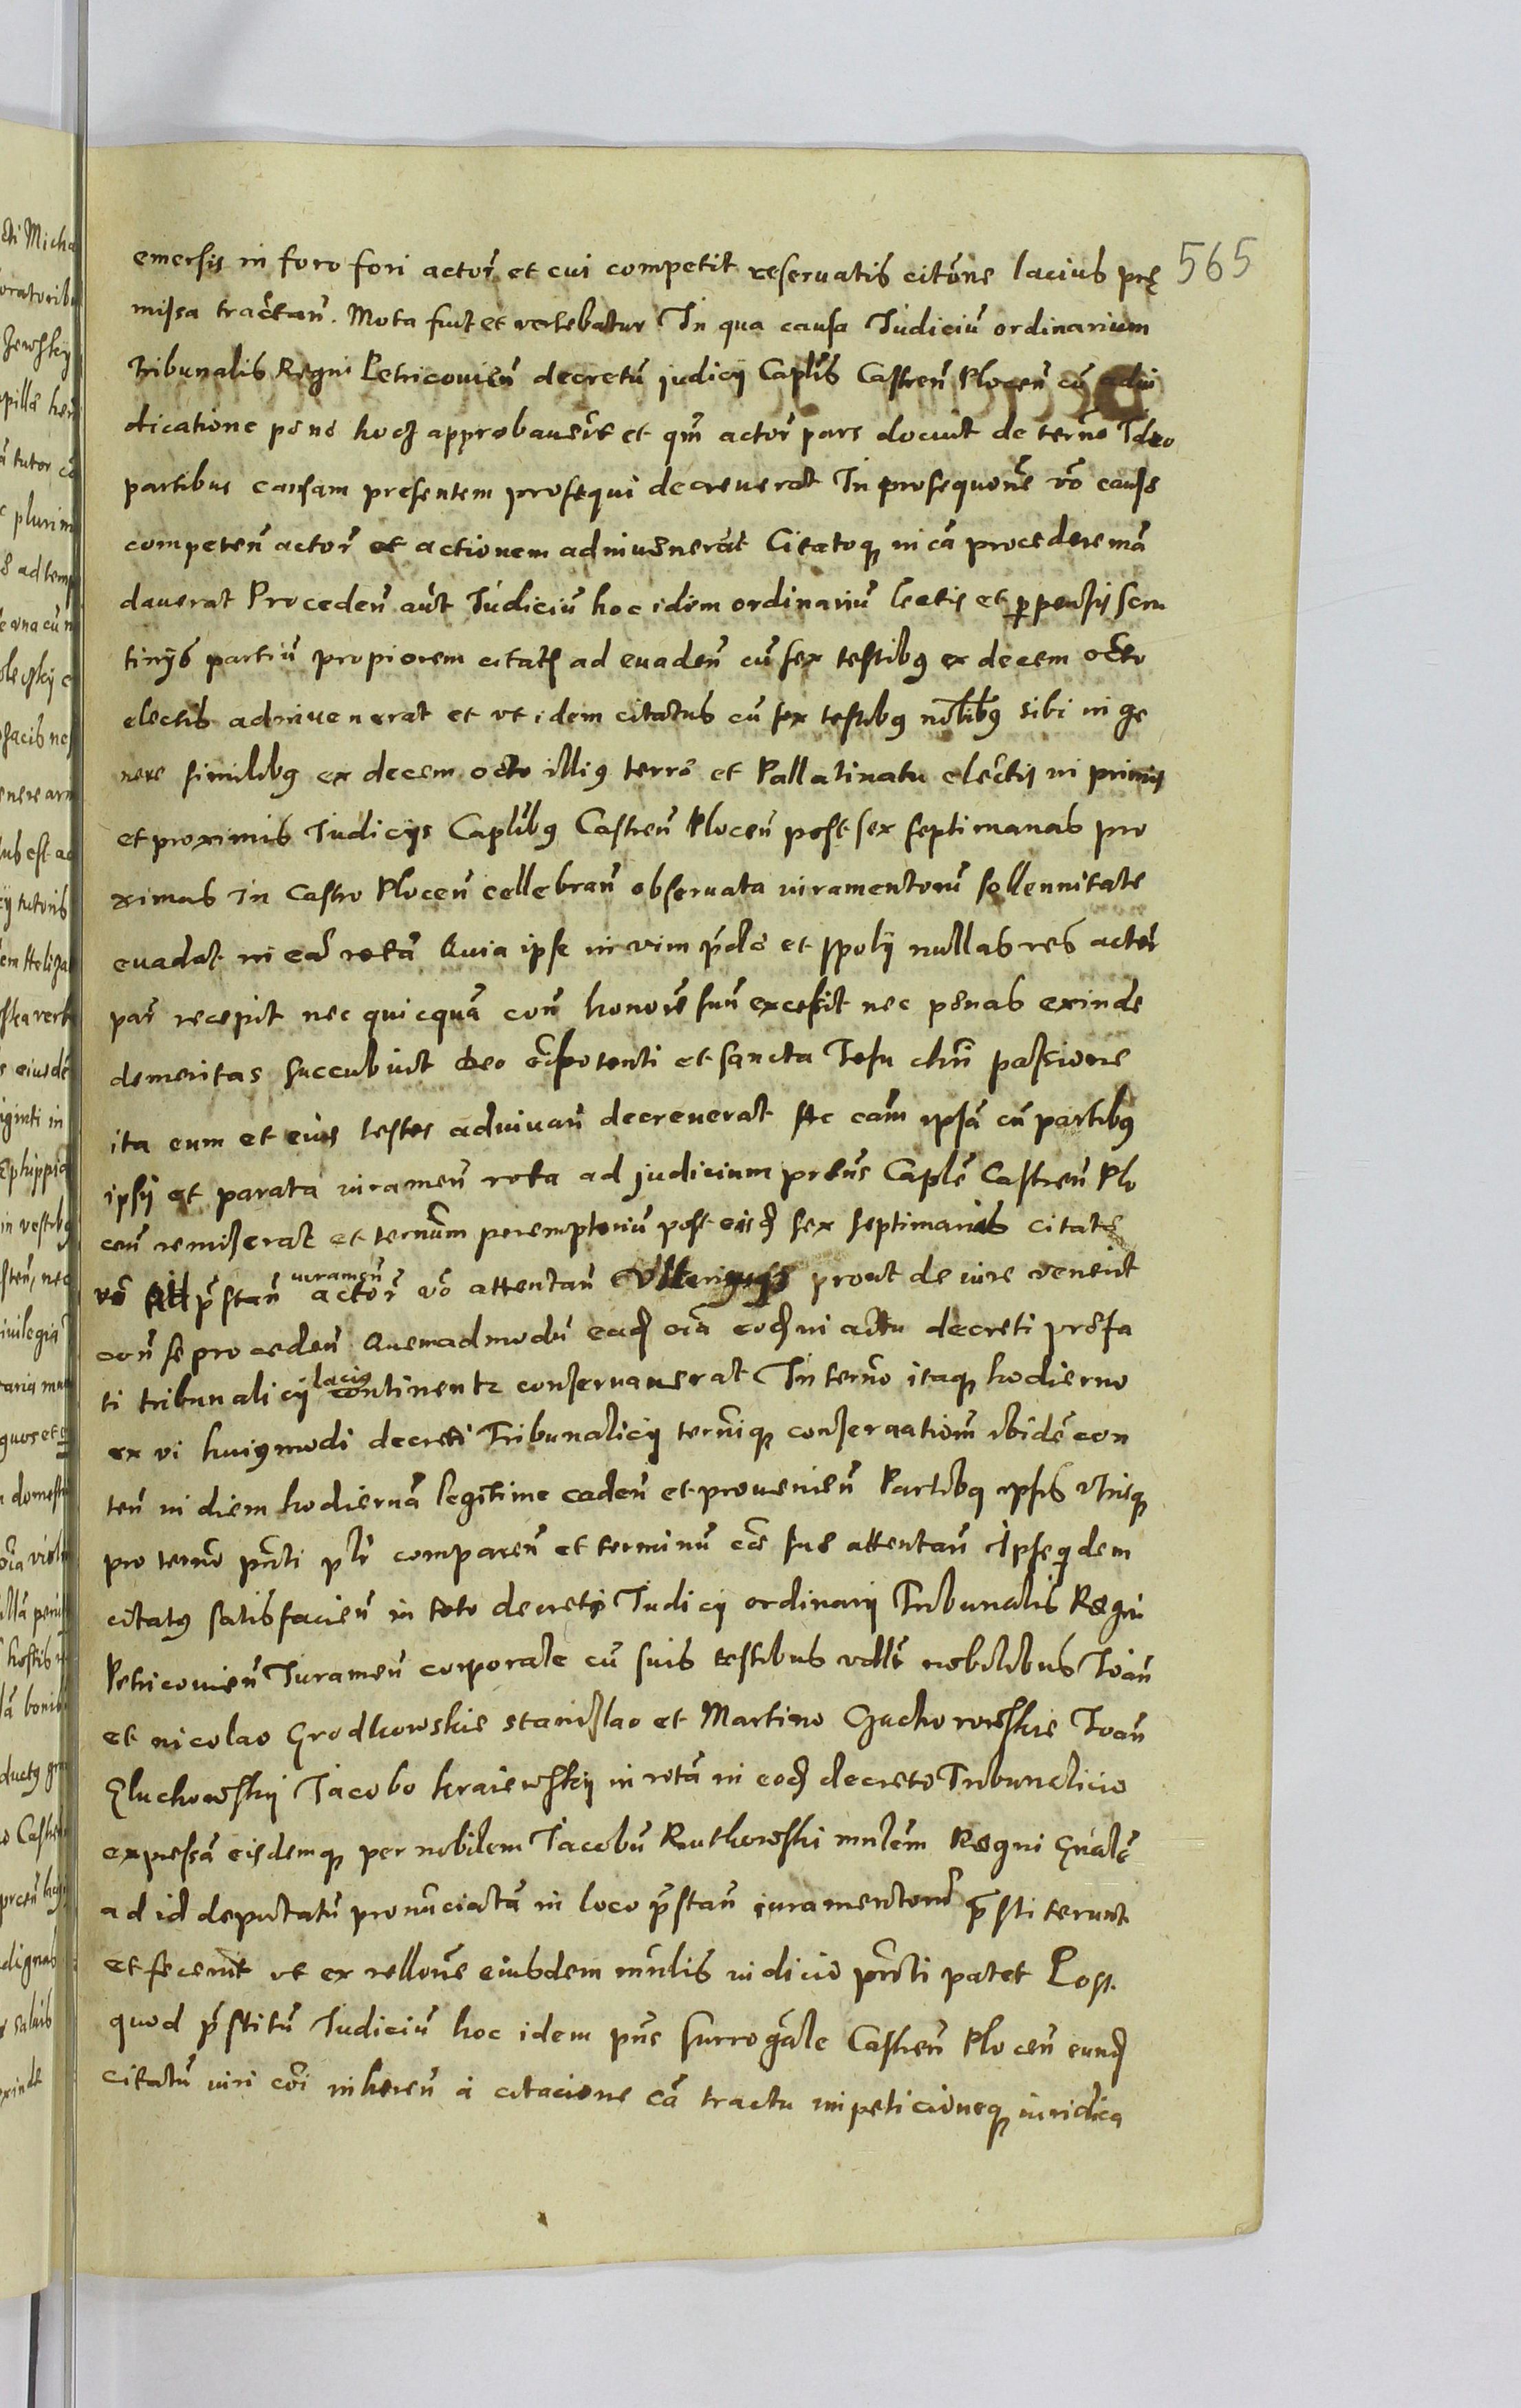 565
emersis in foro fori actor̃ et cui competit reservatis citõne lacius prę
missa tractan̄. Mota fuit et vertebatur In qua causa Judiciū ordinarium
Tribunalis Regni Petricovien̄ decretū judicij Capl̃is Castren̄ Plocen̄ cū adiu
dicatione penę approbaverit et qm̃ actor̃ pars docuit de term̃o Ideo
partibus causam presentem prosequi decreverat In prosequonẽ võ causę
competen̄ actor̃ et actionem adinvenerat Citatoq₃ in eã procedere mã
daverat Proceden̄ aūt Judiciū hoc idem ordinariū lectis et perpensis scru
tinijs partiū propiorem citatū ad evaden̄ cū sex testibꝰ ex decem octo
electis adinvenerat et ut idem citatus cū sex testibꝰ nobilibꝰ sibi in ge
nere similibꝰ ex decem octo illiꝰ terrę et Pallatinatu electis in primis
et proximis Judicijs Caplibꝰ Castren̄ Plocen̄ post sex septimanas pro
ximas in Castro Plocen̄ cellebran̄ observata iuramentorū sollennitate
evadat in eã rotã Quia ipse in vim p̃dę et spolij nullas res actor̃
par̃ recepit nec quicquã con̄ honorẽ suū excessit nec penas exinde
demeritas succubuit deo om̃ipotenti et sancta Jesu chr̃i passione
ita eum et eius testes adiuvan̄ decreverat Ac cam̃ ipsã cū partibꝰ
ipsis et parata iuramen̄ rota ad judicium pręns Caplẽ Castren̄ Plo
cen̄ remiserat et term̃um peremptoriū post eisd̃ sex septimanas citatę
võ p̃stan̄ iuramen̄ actor̃ võ attentan̄ prout de iure venerit
con̄ se proceden̄ Quemadmodū ead̃ oĩa eod̃ in actu decreti prefa
ti tribunalicij laciꝰ continentr conservaverat In term̃o itaq₃ hodierno
ex vi huiꝰmodi decreti Tribunalicij term̃iq₃ conservationẽ ibidẽ con
ten̄ in diem hodiernã legitime caden̄ et provenien̄ Partibꝰ ipsis utrisq₃
pro term̃o pñti pl̃r comparen̄ et terminū cãę suę attentan̄ Ipse q̃dem
citatꝰ satisfacien̄ in toto decreto Judicij ordinarij Tribunalis Regni
Petricovien̄ Juramen̄ corporale cū suis testibus vdlt nobilibus Joan̄
et nicolao Grodkowskie stanislao et Martino Joan̄
Gluchowskij Jacobo kraiewskij in rotã in eod̃ decreto Tribunalicio
expressã eisdemq₃ per nobilem Jacobū Rutkowski mnlem̃ Regni Gñalẽ
ad id deputatū pronunciatã in loco p̃stan̄ iuramentorū p̃stiterunt
et fecerūt ut ex rellonẽ eiusdem mñlis iudicio pñti patet Post
quod p̃stitū Judiciū hoc idem pñs surrogale Castren̄ Plocen̄ eund̃
citatū iuri cõi inheren̄ à citacione cã tractu impeticioneq₃ iuridica